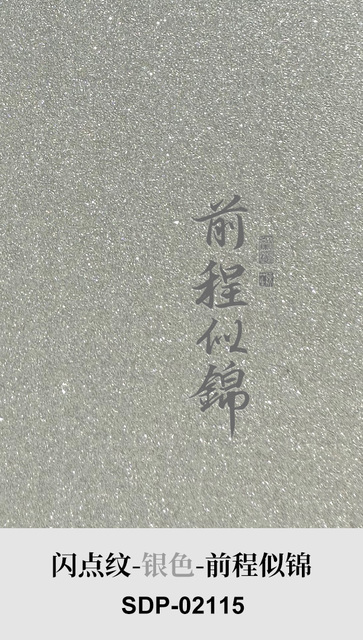 前程似錦
闪点纹-银色-前程似锦
SDP-02115